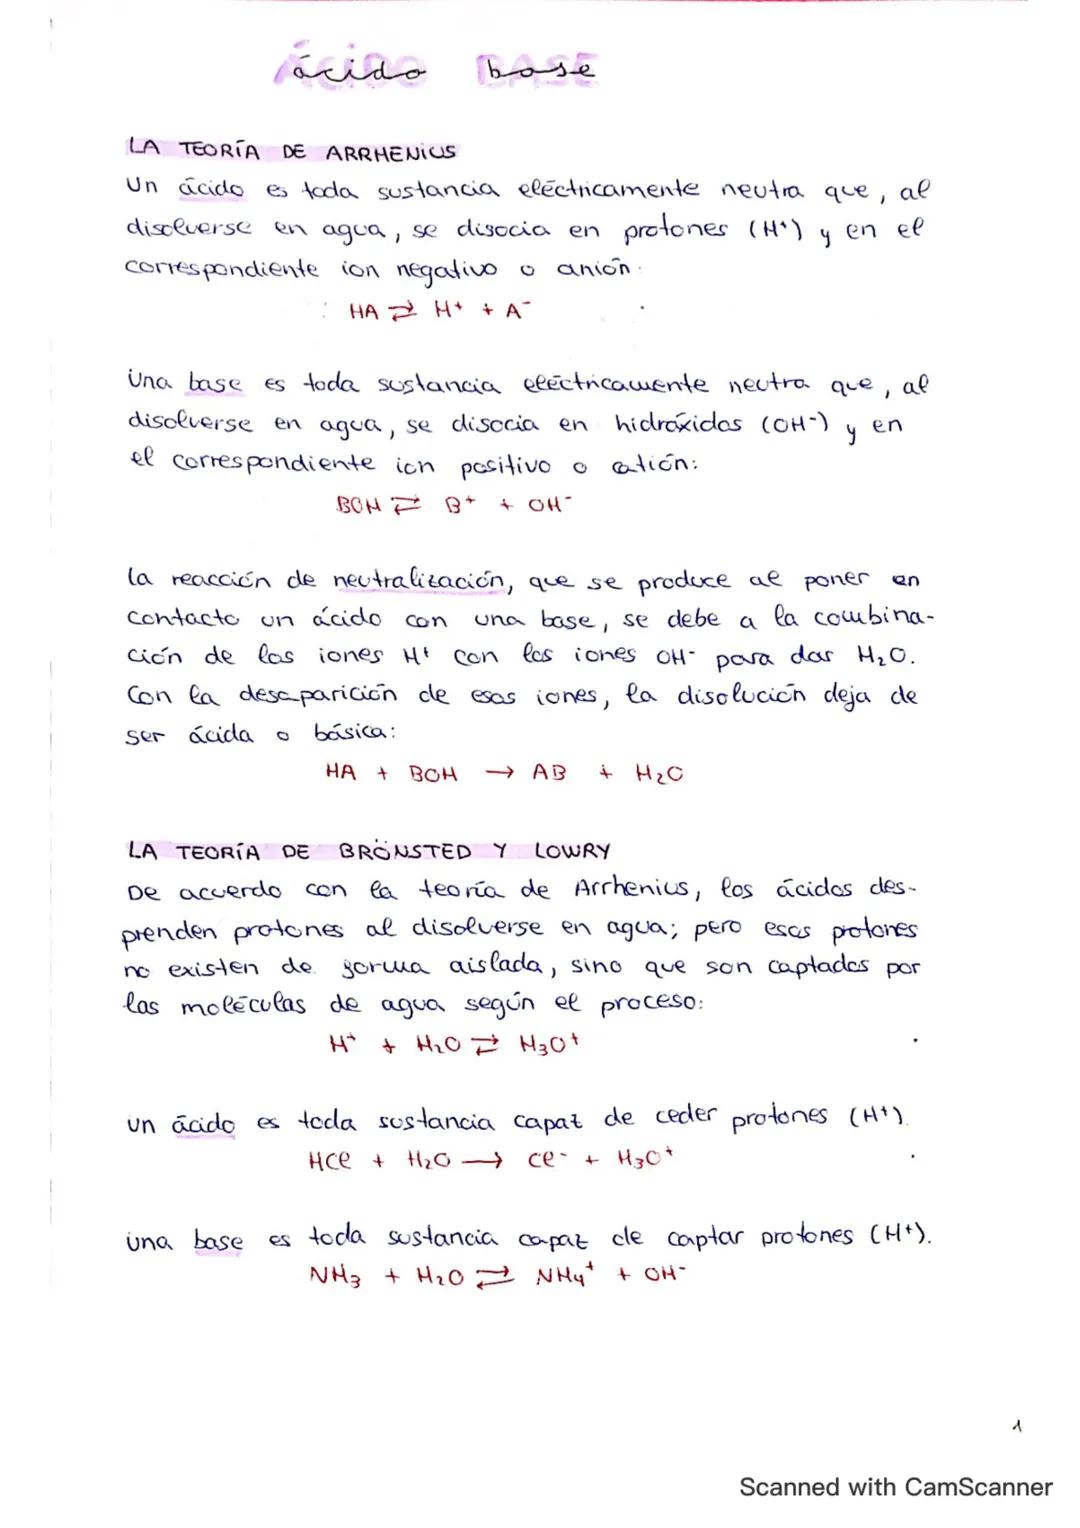 ácido base
LA TEORÍA DE ARRHENIUS
Un ácido es toda sustancia eléctricamente neutra que, al
disolverse en agua, se disocia en protones (H⁺) y en el
correspondiente ion negativo o anión:
HA ⇄ H⁺ + A⁻
Una base es toda sustancia eléctricamente neutra que, al
disolverse en agua, se disocia en hidróxidos (OH⁻) y en
el correspondiente ion positivo o catión:
BOH ⇄ B⁺ + OH⁻
La reacción de neutralización, que se produce al poner en
contacto un ácido con una base, se debe a la combina-
ción de los iones H⁺ con los iones OH⁻ para dar H₂O.
Con la desaparición de esos iones, la disolución deja de
ser ácida o básica:
HA + BOH → AB + H₂O
LA TEORÍA DE BRÖNSTED Y LOWRY
De acuerdo con la teoría de Arrhenius, los ácidos des-
prenden protones al disolverse en agua; pero esos protones
no existen de forma aislada, sino que son captados por
las moléculas de agua según el proceso:
H⁺ + H₂O ⇄ H₃O⁺
Un ácido es toda sustancia capaz de ceder protones (H⁺).
HCl + H₂O → Cl⁻ + H₃O⁺
Una base es toda sustancia capaz de captar protones (H⁺).
NH₃ + H₂O ⇄ NH₄⁺ + OH⁻
1
Scanned with CamScanner